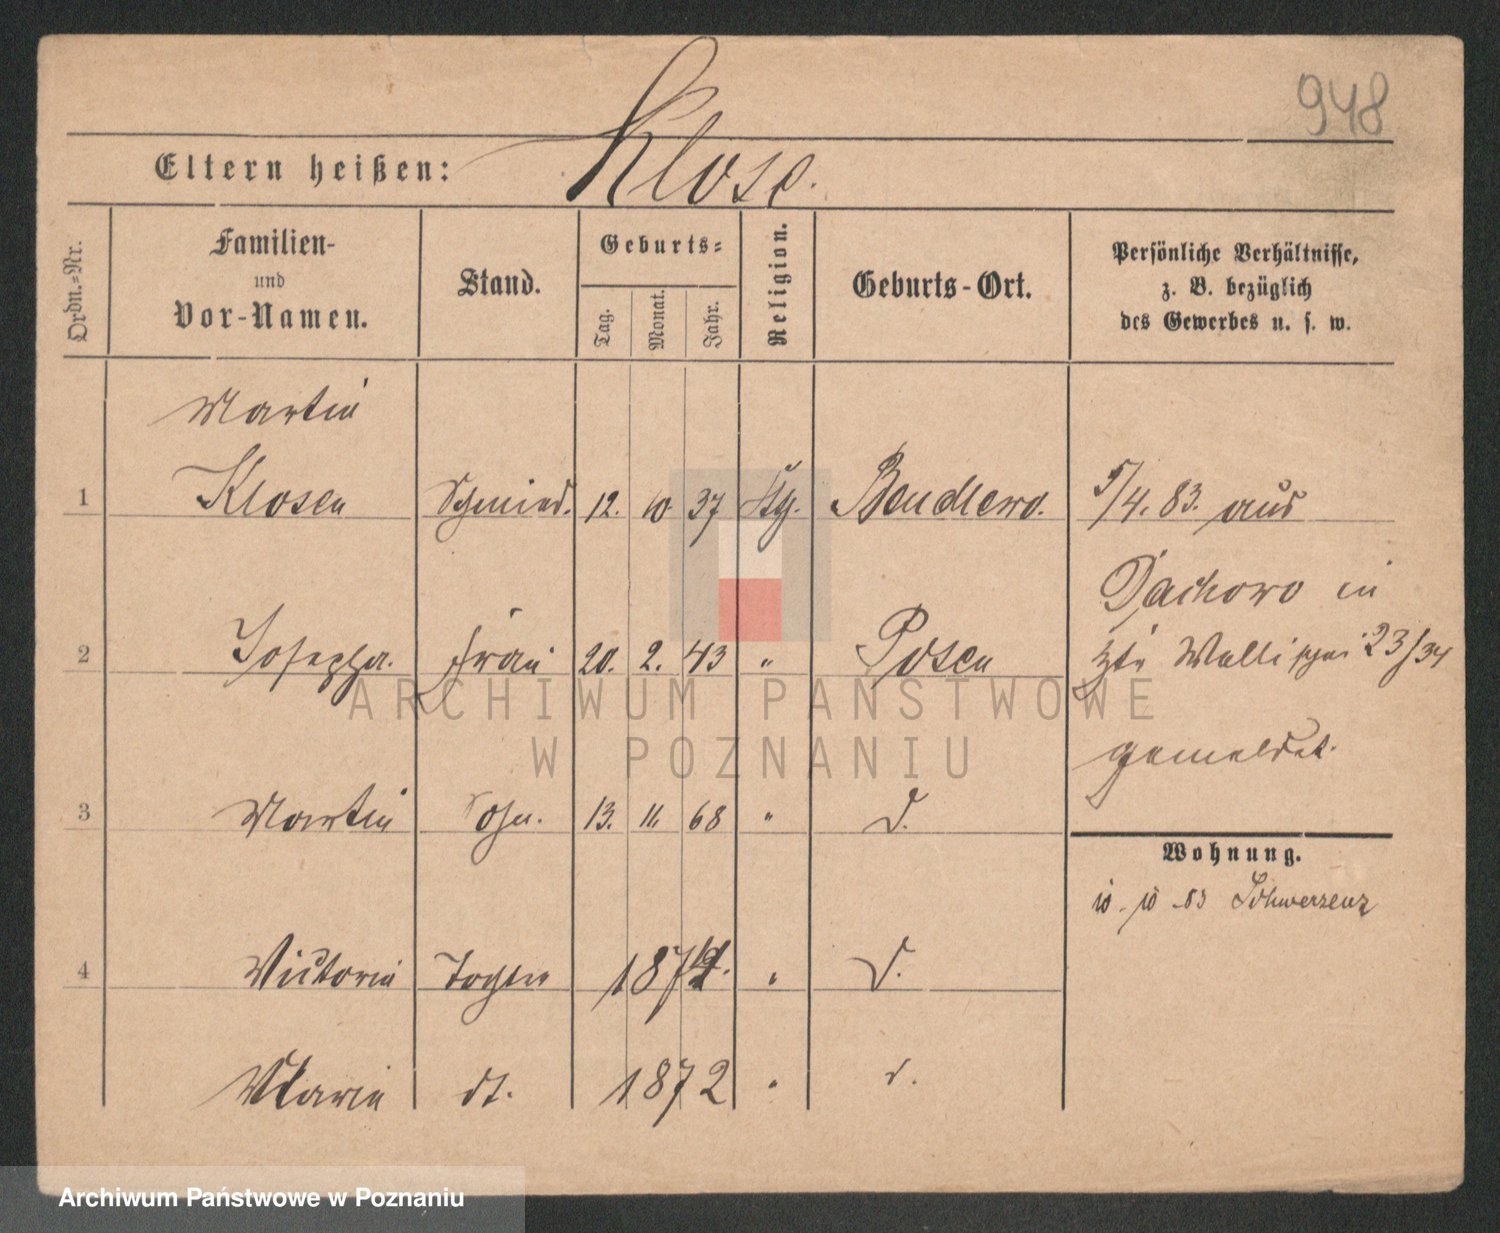 948
Eltern heißen: Klose.
Ordn.-Nr.
Familien-
und
Vor-Namen.
Stand.
Geburts-
Tag.
Monat.
Jahr.
Religion.
Geburts-Ort.
Persönliche Verhältnisse,
z. B. bezüglich
des Gewerbes u. s. w.
Martin
1 Klosen Schmied. 12. 10. 37 Ktg. Bendlewo. 5/4. 83. aus
Dachowo in
2 Josepha. Frau 20. 2. 43 " Posen Wallischei 23/34
gemeldet.
3 Martin Sohn. 13. 11. 68 " d.
Wohnung.
10. 10. 83 Schwersenz
4 Victoria Tochter 1874. " d.
Maria dt. 1872 " d.
ARCHIWUM PAŃSTWOWE
W POZNANIU
Archiwum Państwowe w Poznaniu